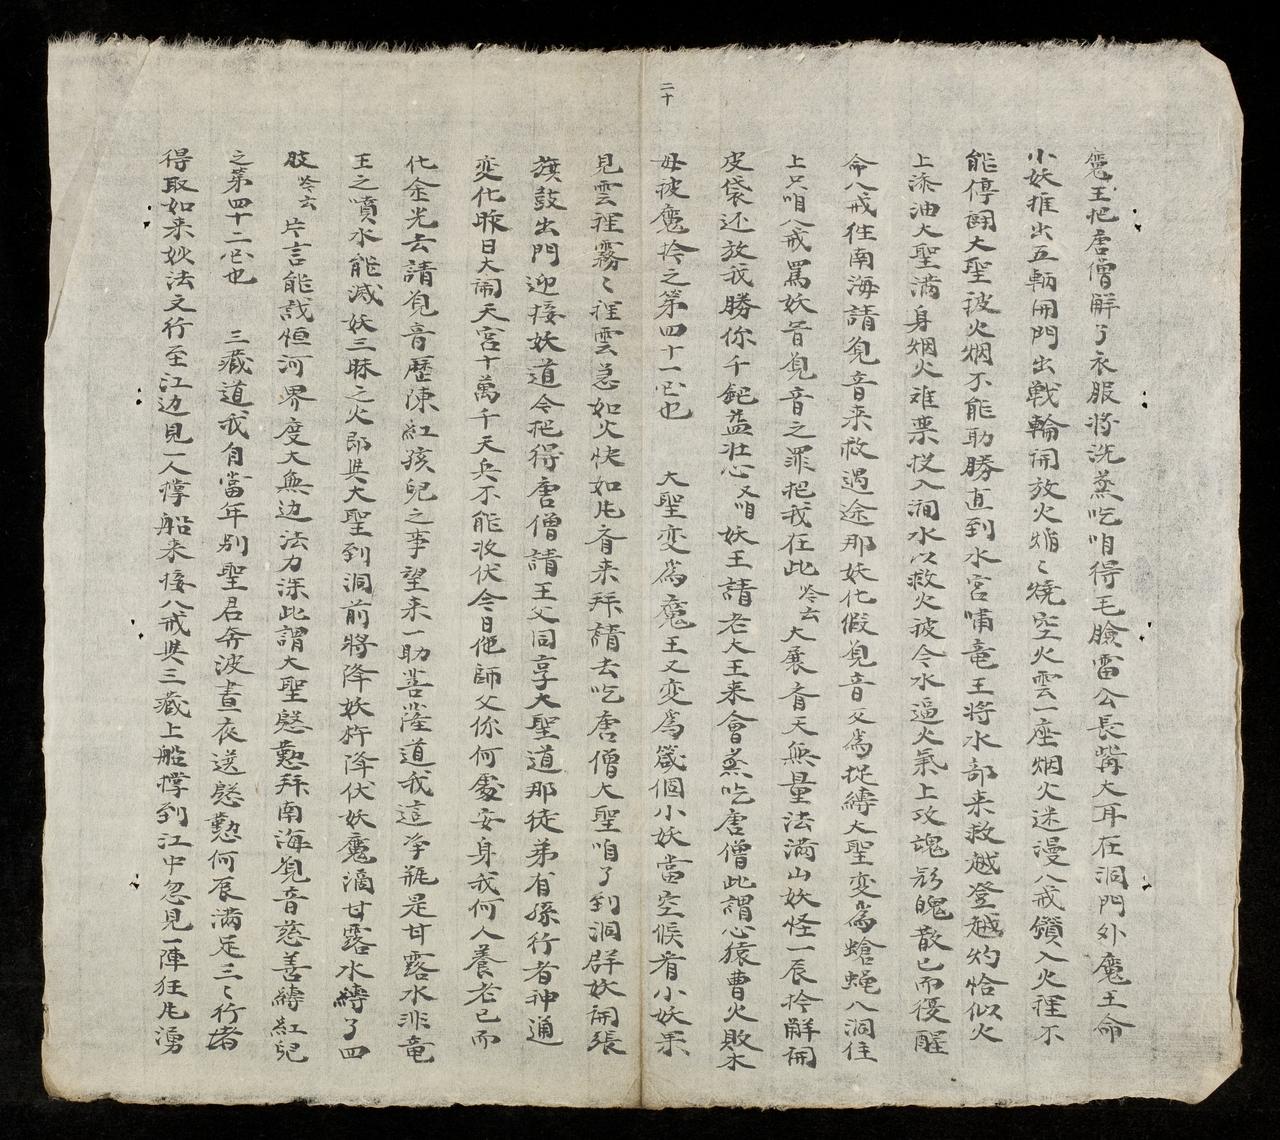 二十
魔王把唐僧解了衣服将洗蒸吃咱得毛臉雷公長嘴大耳在洞門外魔王命
小妖推出五輌開門出戦輪開放火焔〻燒空火雲一座烟火迷漫八戒鑽入火裡不
能停闘大聖被火烟不能取勝直到水宮哺竜王将水部来救越登越灼恰似火
上添油大聖満身烟火难禀投入洞水以救火被令水逼火氣上攻魂飛魄散已而復醒
命八戒往南海請覓音来救遇途那妖化假覓音又為捉縛大聖変為蝇八洞住
上只咱八戒罵妖音覓音之罪把我在此 吟云大展音天無量法満山妖怪一辰拎解開
皮袋还放我勝你千鈀益壮心又咱妖王請老大王来會蒸吃唐僧此謂心猿曹火敗木
母被魔拎之第四十一回也 大聖变為魔王又变為箴個小妖當空候肴小妖果
見雲裡霧〻裡雲急如火快如风斉来拜請去吃唐僧大聖咱了到洞群妖開張
旗鼓出門迎接妖道令把得唐僧請王父同享大聖道那徒弟有孫行者神通
変化昨日大閙天宮十萬千天兵不能收伏今日他師父你何處安身我何人養老已而
化金光去請覓音歷陳紅孩兒之事望来一助菩薩道我這净瓶是甘露水非竜
王之噴水能减妖三昧之火即與大聖到洞前將降妖杵降伏妖魔滴甘露水縛了四
肢 吟云 片言能設恒河界度大無边法力深此謂大聖慇懃拜南海覓音慈善縛紅兒
之第四十二回也 三藏道我自當年别聖君奔波晝夜送慇懃何辰満足三〻行者
得取如来妙法文行至江边見一人撑船来接八戒與三藏上船撑到江中忽見一陣狂风湧